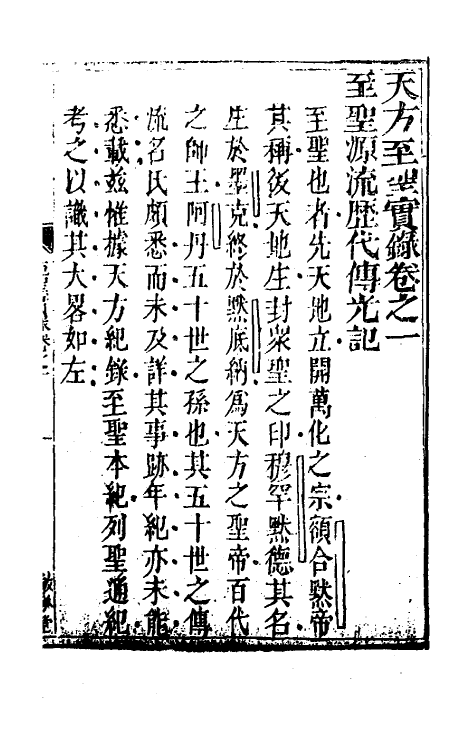 天方至聖實錄卷之一
至聖源流歷代傳光記
至聖也者先天地立開萬化之宗額合默帝
其稱後天地生封衆聖之印穆罕默德其名
生於墨克終於默底納爲天方之聖帝百代
之師王阿丹五十世之孫也其五十世之傳
流名氏頗悉而未及詳其事跡年紀亦未能
悉載兹惟據天方紀錄至聖本紀列聖通紀
考之以識其大畧如左